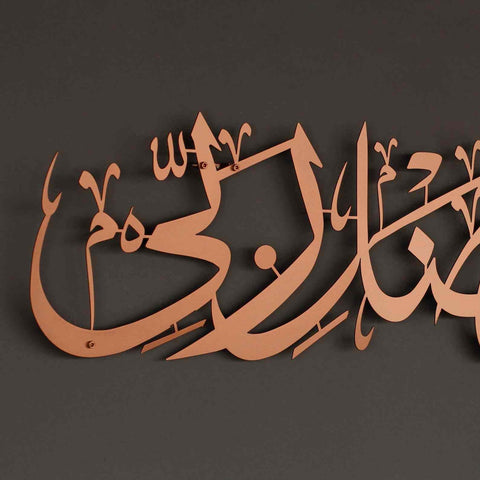 فضل ربي